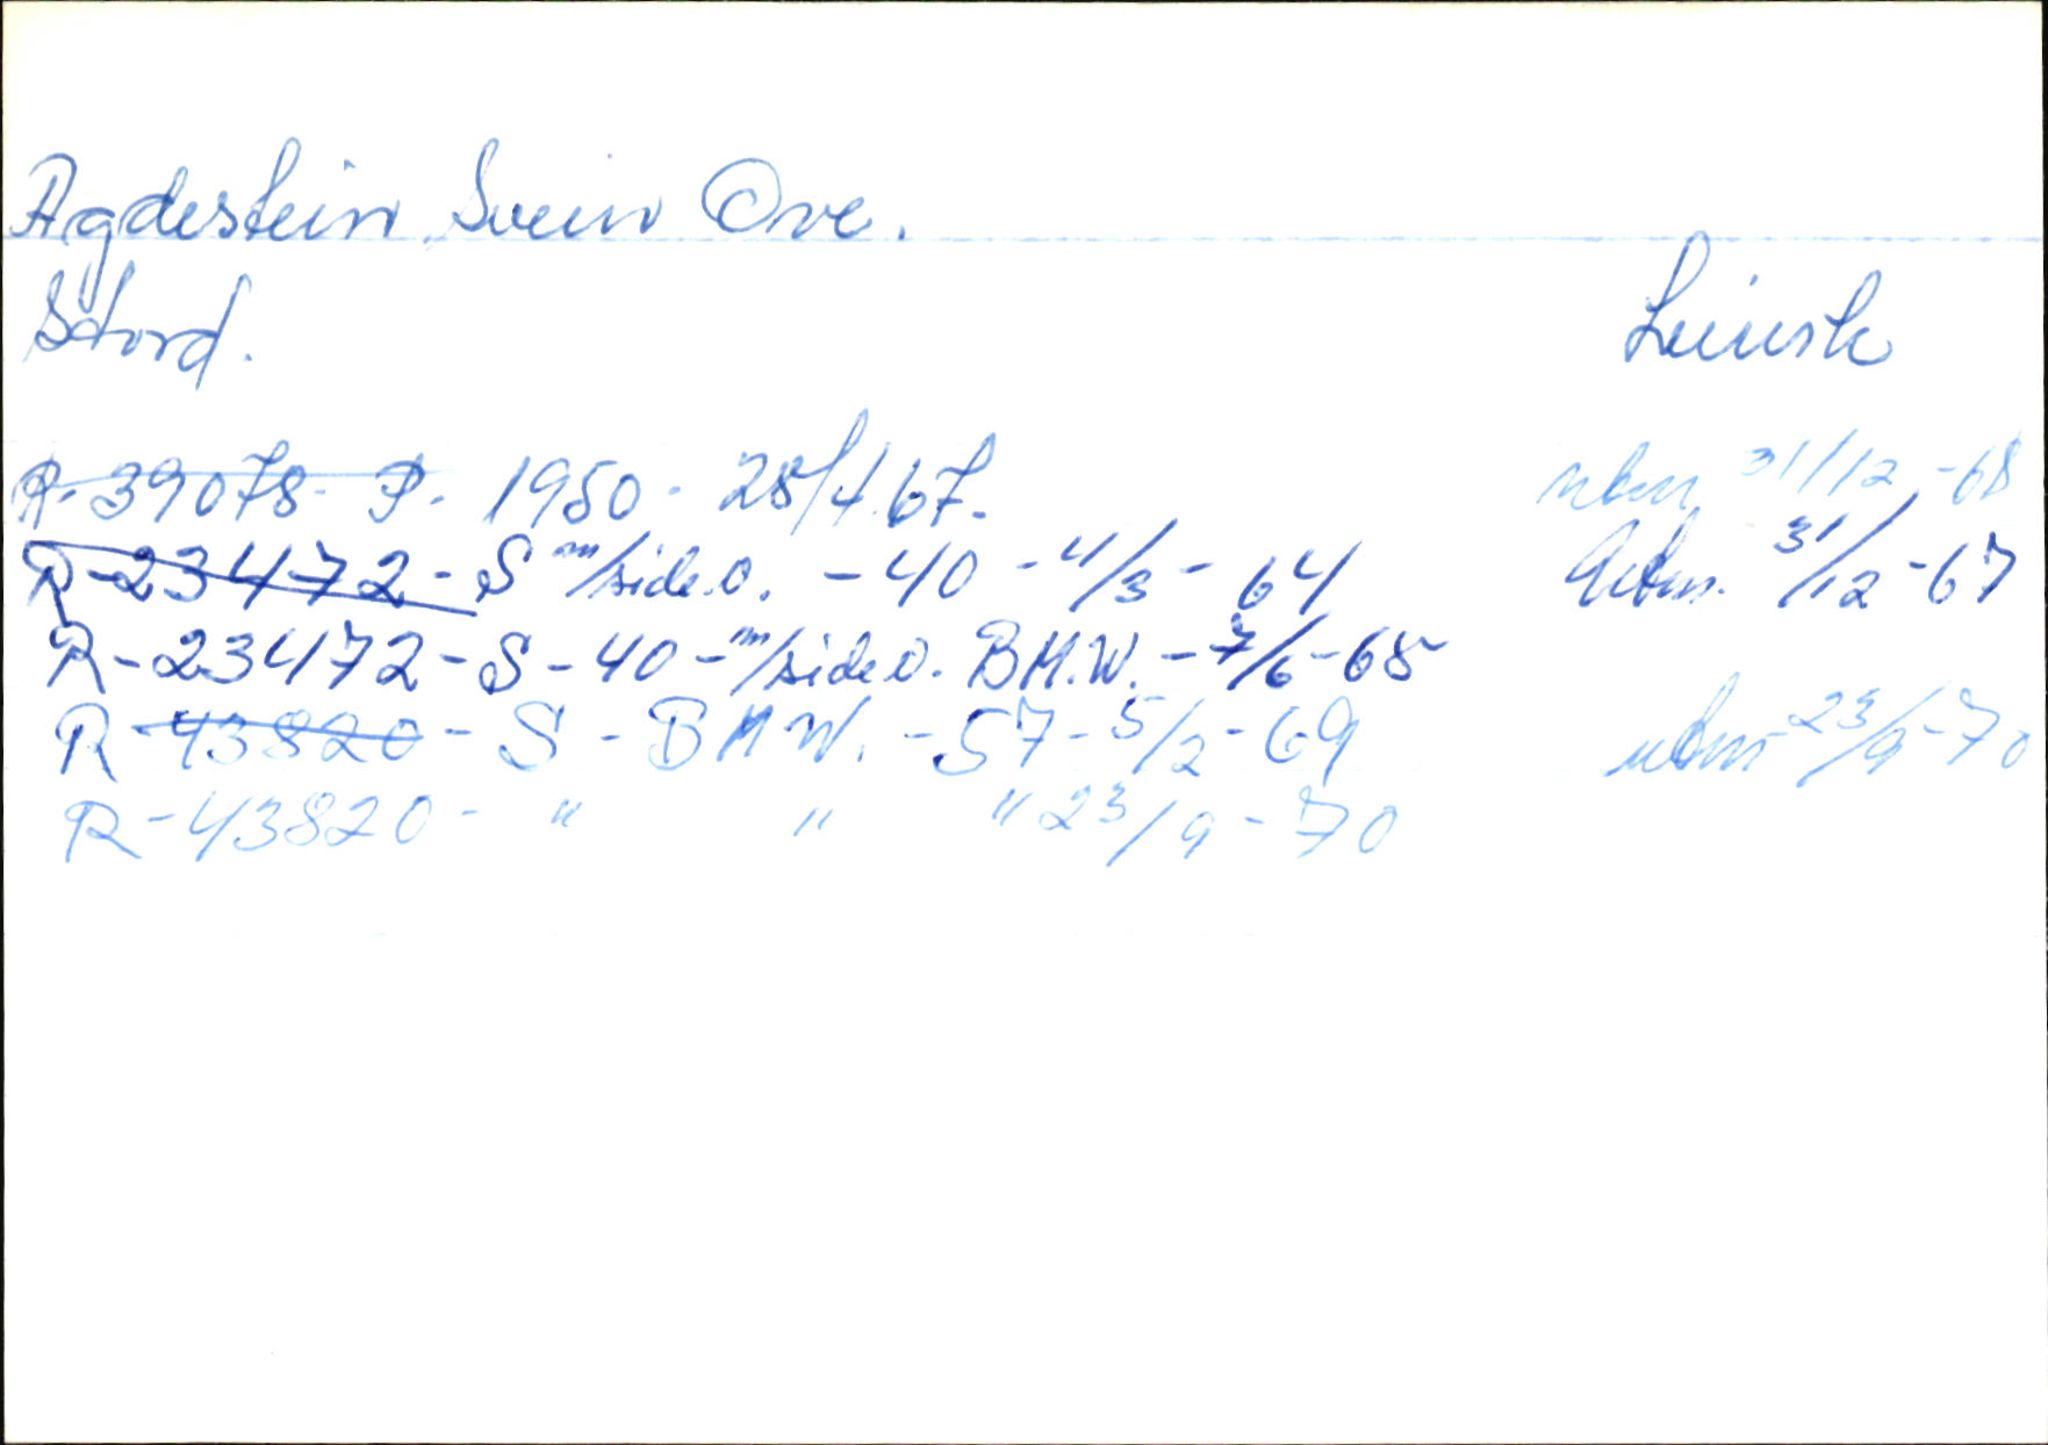 Agdestein, Svein Ove.
Stord. Leirvik
R. 39078 - P. 1950 - 28/4.67. ubm 31/12-68
R-23472 - S m/sidev. - 40 - 4/3 - 64 31/12-67
R-23472 - S - 40 - m/sidev. B.M.W. - 7/6-65
R-43820 - S - BMW. - 57 - 5/2 - 69 ubm 23/9-70
R-43820 - " " " 23/9 - 70